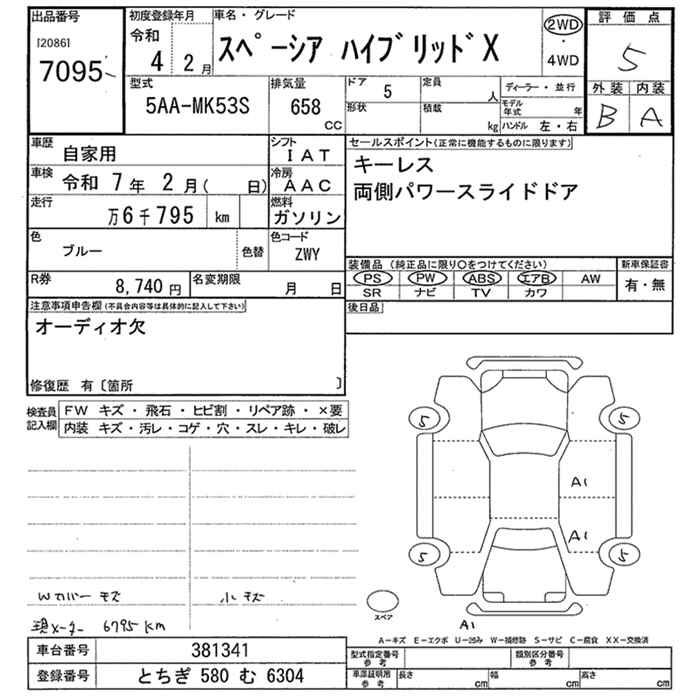 出品番号
[20861
7095
初度登録年月
令和
4 2月
車名・グレード
スペーシア ハイブリッドX
2WD
・
4WD
評価点
5
外装 内装
B A
型式
5AA-MK53S
排気量
658
CC
ドア 5
形状
定員 人
積載 kg
ディーラー・並行
モデル年式 年
ハンドル 左・右
車歴 自家用
シフト IAT
車検 令和 7年 2月( 日)
冷房 AAC
走行 万6千795 km
燃料 ガソリン
色 ブルー 色替
色コード ZWY
R券 8,740円
名変期限 月 日
セールスポイント(正常に機能するものに限ります)
キーレス
両側パワースライドドア
装備品(純正品に限り○をつけてください) 新車保証書
PS PW ABS エアB AW 有・無
SR ナビ TV カワ
後日品
注意事項申告欄(不具合内容等は具体的に記入して下さい)
オーディオ欠
修復歴 有〔箇所 〕
検査員記入欄
FW キズ・飛石・ヒビ割・リペア跡・×要
内装 キズ・汚レ・コゲ・穴・スレ・キレ・破レ
5 5
A1
A1
5 5
Wカバー キズ 小キズ
スペア
A1
現メーター 6795 km
A-キズ E-エクボ U-凹み W-補修跡 S-サビ C-腐食 XX-交換済
車台番号 381341
登録番号 とちぎ 580 む 6304
型式指定番号 参考
類別区分番号 参考
車庫証明用 参考 長さ cm 幅 cm 高さ cm